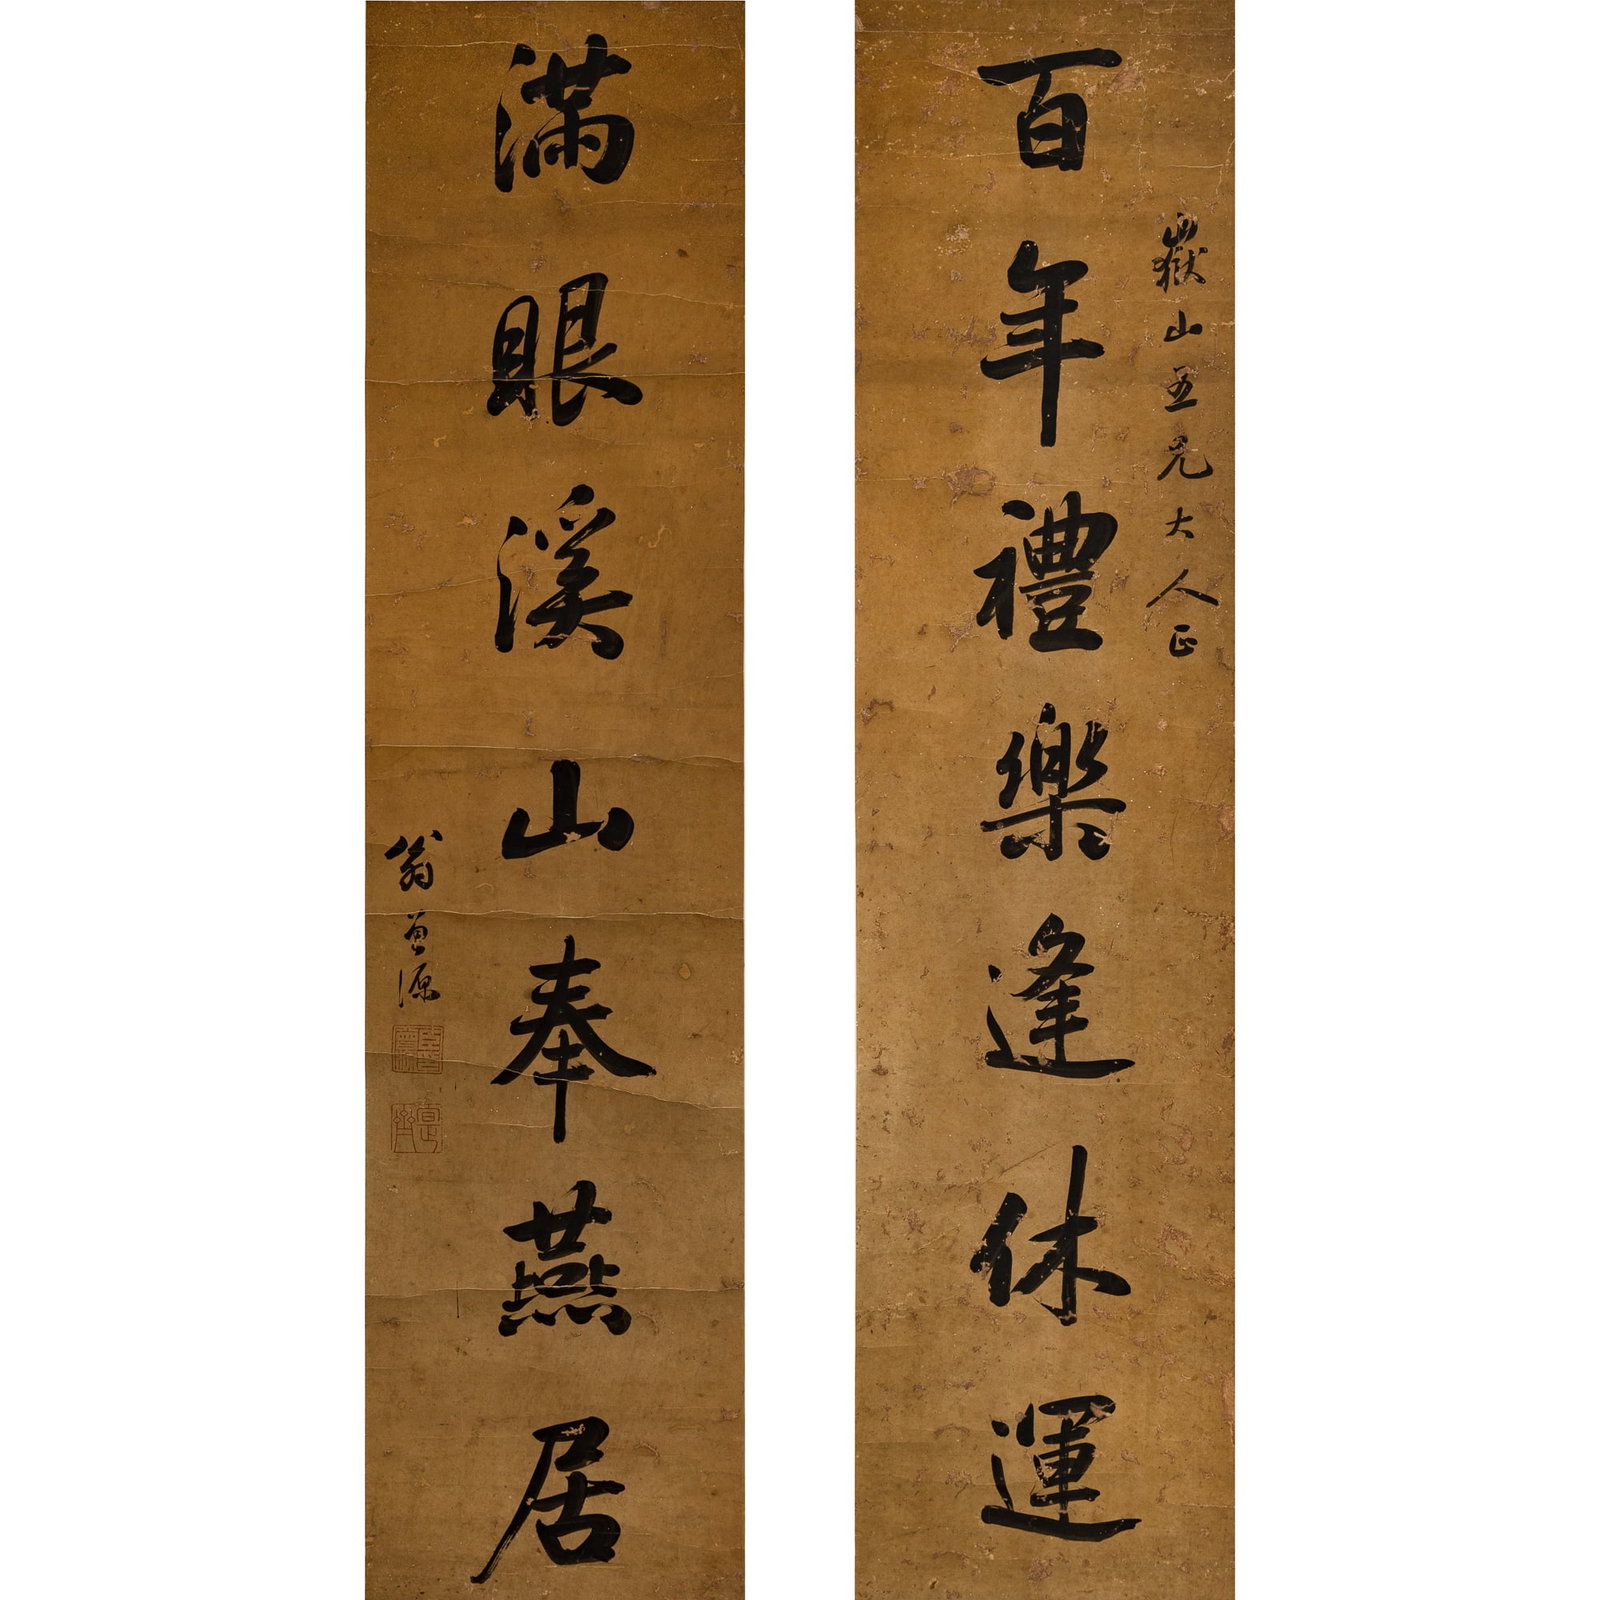 嶽山五兄大人正
百年禮樂逢休運
滿眼溪山奉燕居
翁曾源